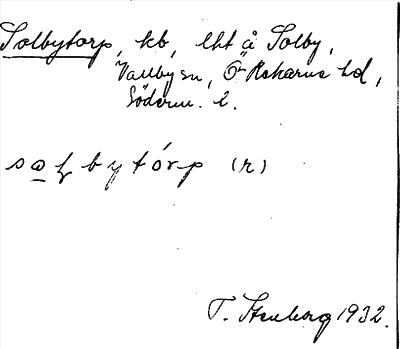 Solbytorp, kb, lht å Solby,
Vallby sn, Ö Rekarne hd,
Söderm. l.
solbytórp (r)
T. Stenborg 1932.